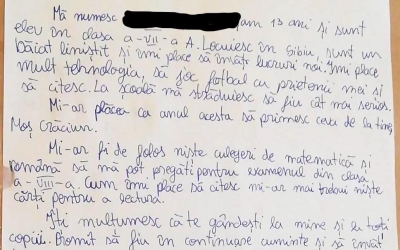 Mă numesc am 13 ani și sunt
elev în clasa a-VII-a A. Locuiesc în Sibiu, sunt un
băiat liniștit și îmi place să învăț lucruri noi. Îmi place
mult tehnologia, să joc fotbal cu prietenii mei și
să citesc. La școală mă străduiesc să fiu cât mai serios.
Mi-ar plăcea ca anul acesta să primesc ceva de la tine,
Moș Crăciun.
Mi-ar fi de folos niște culegeri de matematică și
română să mă pot pregăti pentru examenul din clasa
a-VIII-a. Cum îmi place să citesc mi-ar mai trebui niște
cărți pentru a lectura.
Îți mulțumesc că te gândești la mine și la toți
copiii. Promit să fiu în continuare cuminte și să învăț